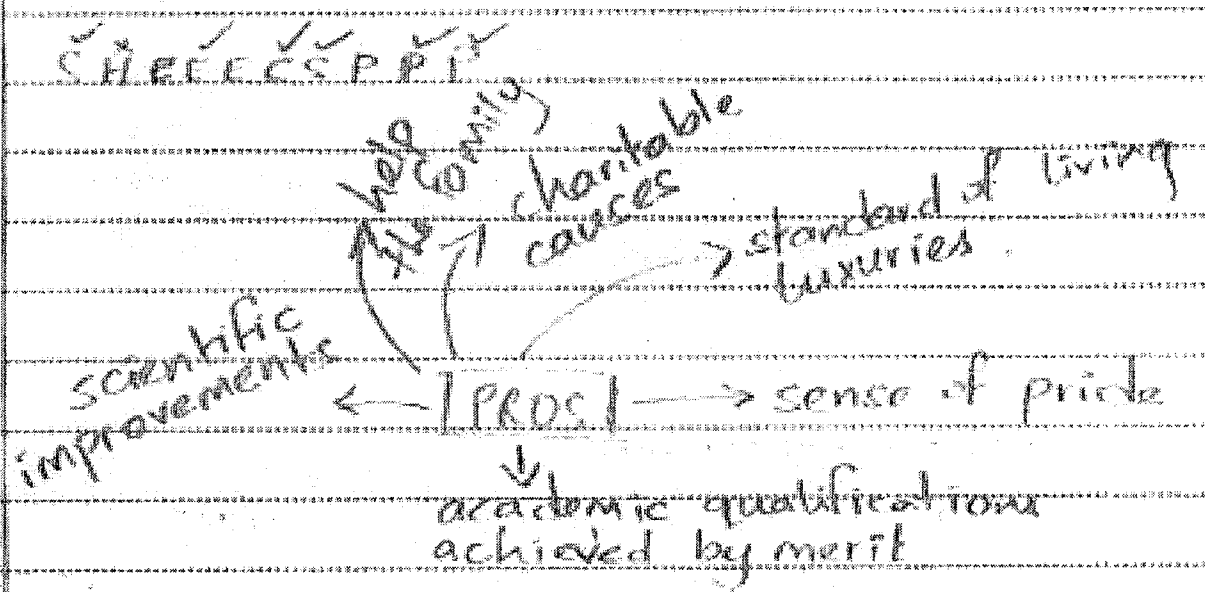 SHEEECSPPI
help
the family
charitable
causes
standard of living
luxuries.
scientific
improvements
PROS
sense of pride
academic qualifications
achieved by merit